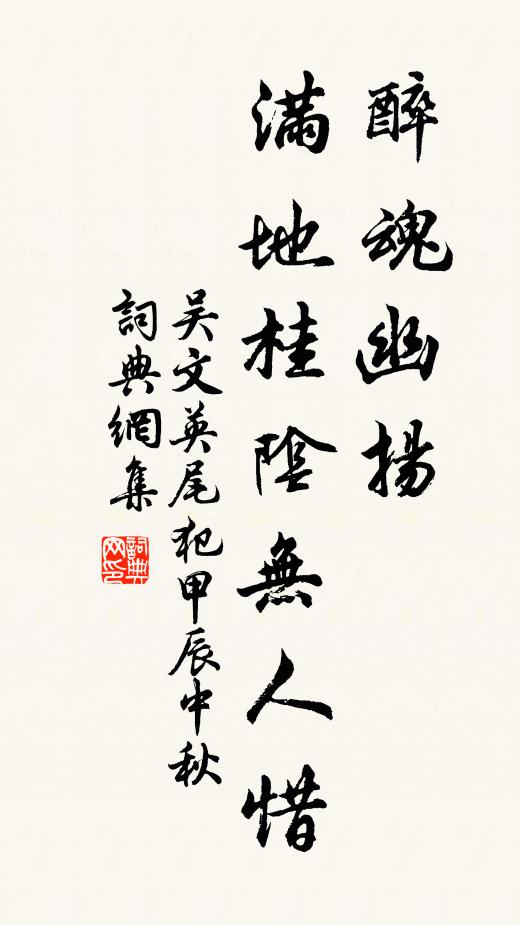 醉魂幽揚
滿地桂陰無人惜
吴文英尾犯甲辰中秋
詞典網集
詞典网印